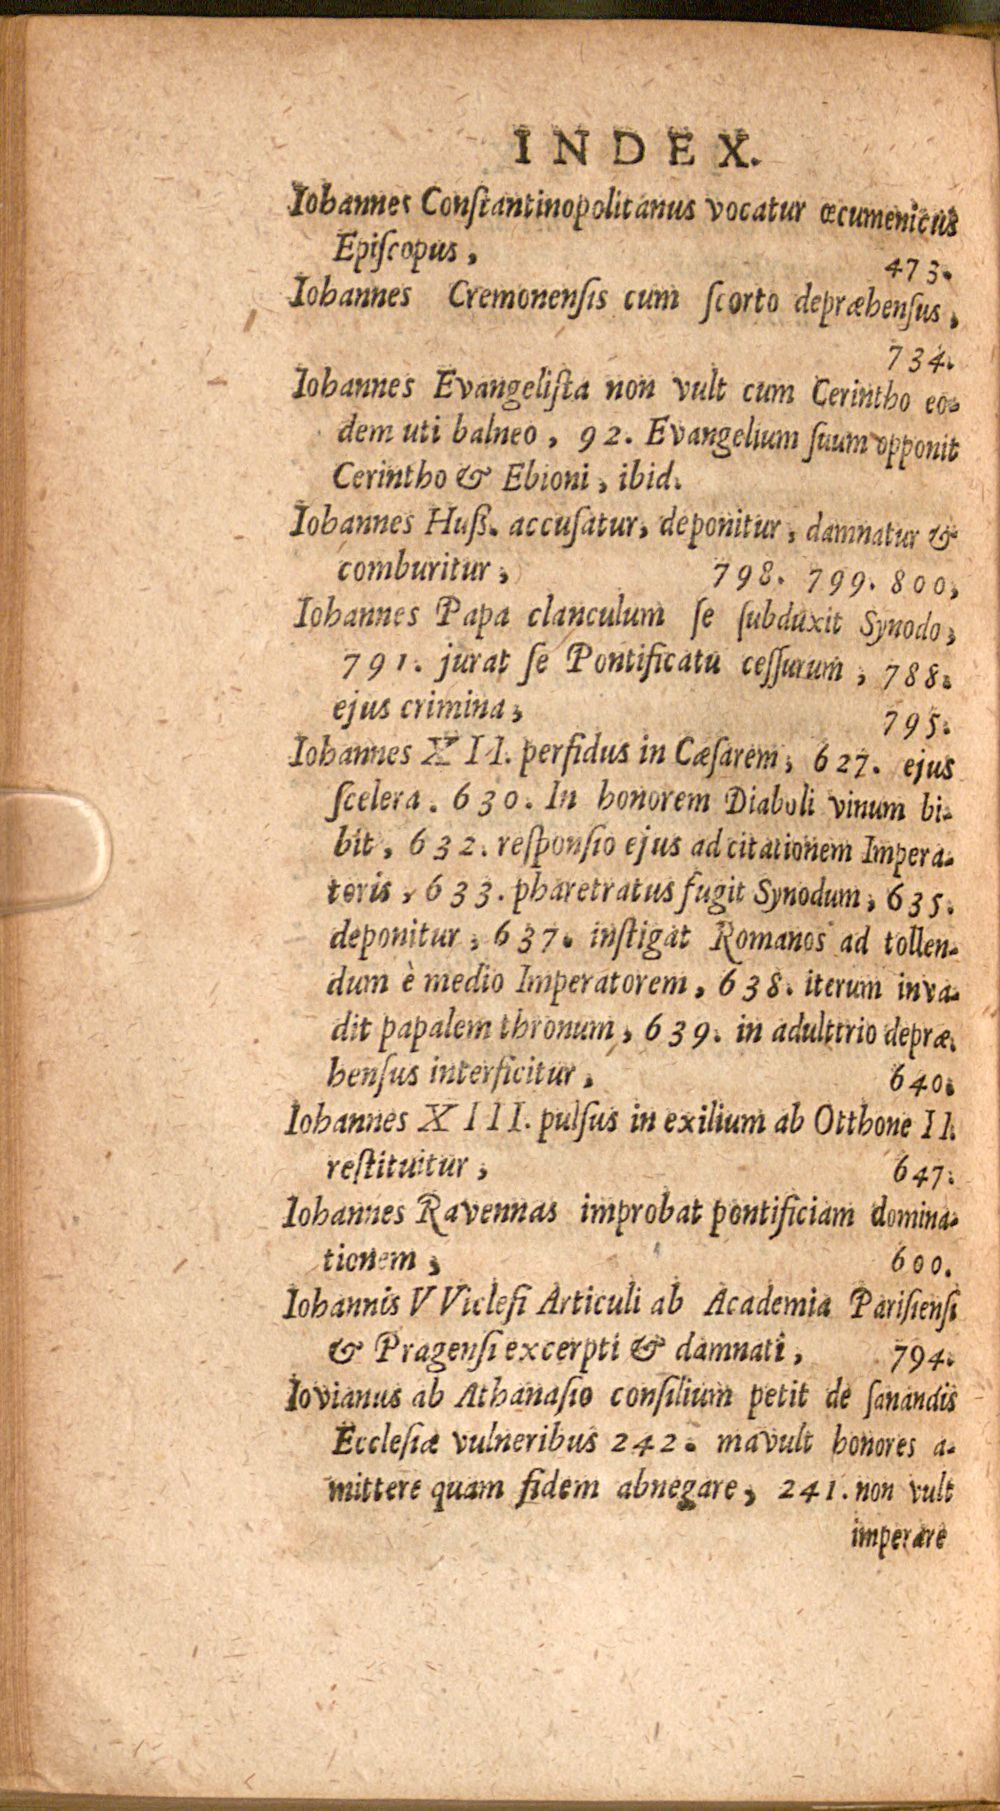 INDEX.
Iohannes Conſtantinopolitanus vocatur œcumenicus
Epiſcopus, 473.
Iohannes Cremonenſis cum ſcorto depræhenſus,
734.
Iohannes Evangeliſta non vult cum Cerintho eo-
dem uti balneo, 92. Evangelium ſuum opponit
Cerintho & Ebioni, ibid.
Iohannes Huß. accuſatur, deponitur, damnatur &
comburitur, 798. 799. 800,
Iohannes Papa clanculum ſe ſubduxit Synodo,
791. jurat ſe Pontificatu ceſſurum, 788.
ejus crimina, 795.
Iohannes XII. perfidus in Cæſarem, 627. ejus
ſcelera. 630. In honorem Diaboli vinum bi-
bit, 632. reſponſio ejus ad citationem Impera-
toris, 633. pharetratus fugit Synodum, 635.
deponitur, 637. inſtigat Romanos ad tollen-
dum è medio Imperatorem, 638. iterum inva-
dit papalem thronum, 639. in adulttrio depræ-
henſus interficitur, 640.
Iohannes XIII. pulſus in exilium ab Otthone II.
reſtituitur, 647.
Iohannes Ravennas improbat pontificiam domina-
tionem, 600.
Iohannis VViclefi Articuli ab Academia Pariſienſi
& Pragenſi excerpti & damnati, 794.
Iovianus ab Athanaſio conſilium petit de ſanandis
Eccleſiæ vulneribus 242. mavult honores a-
mittere quam fidem abnegare, 241. non vult
imperare